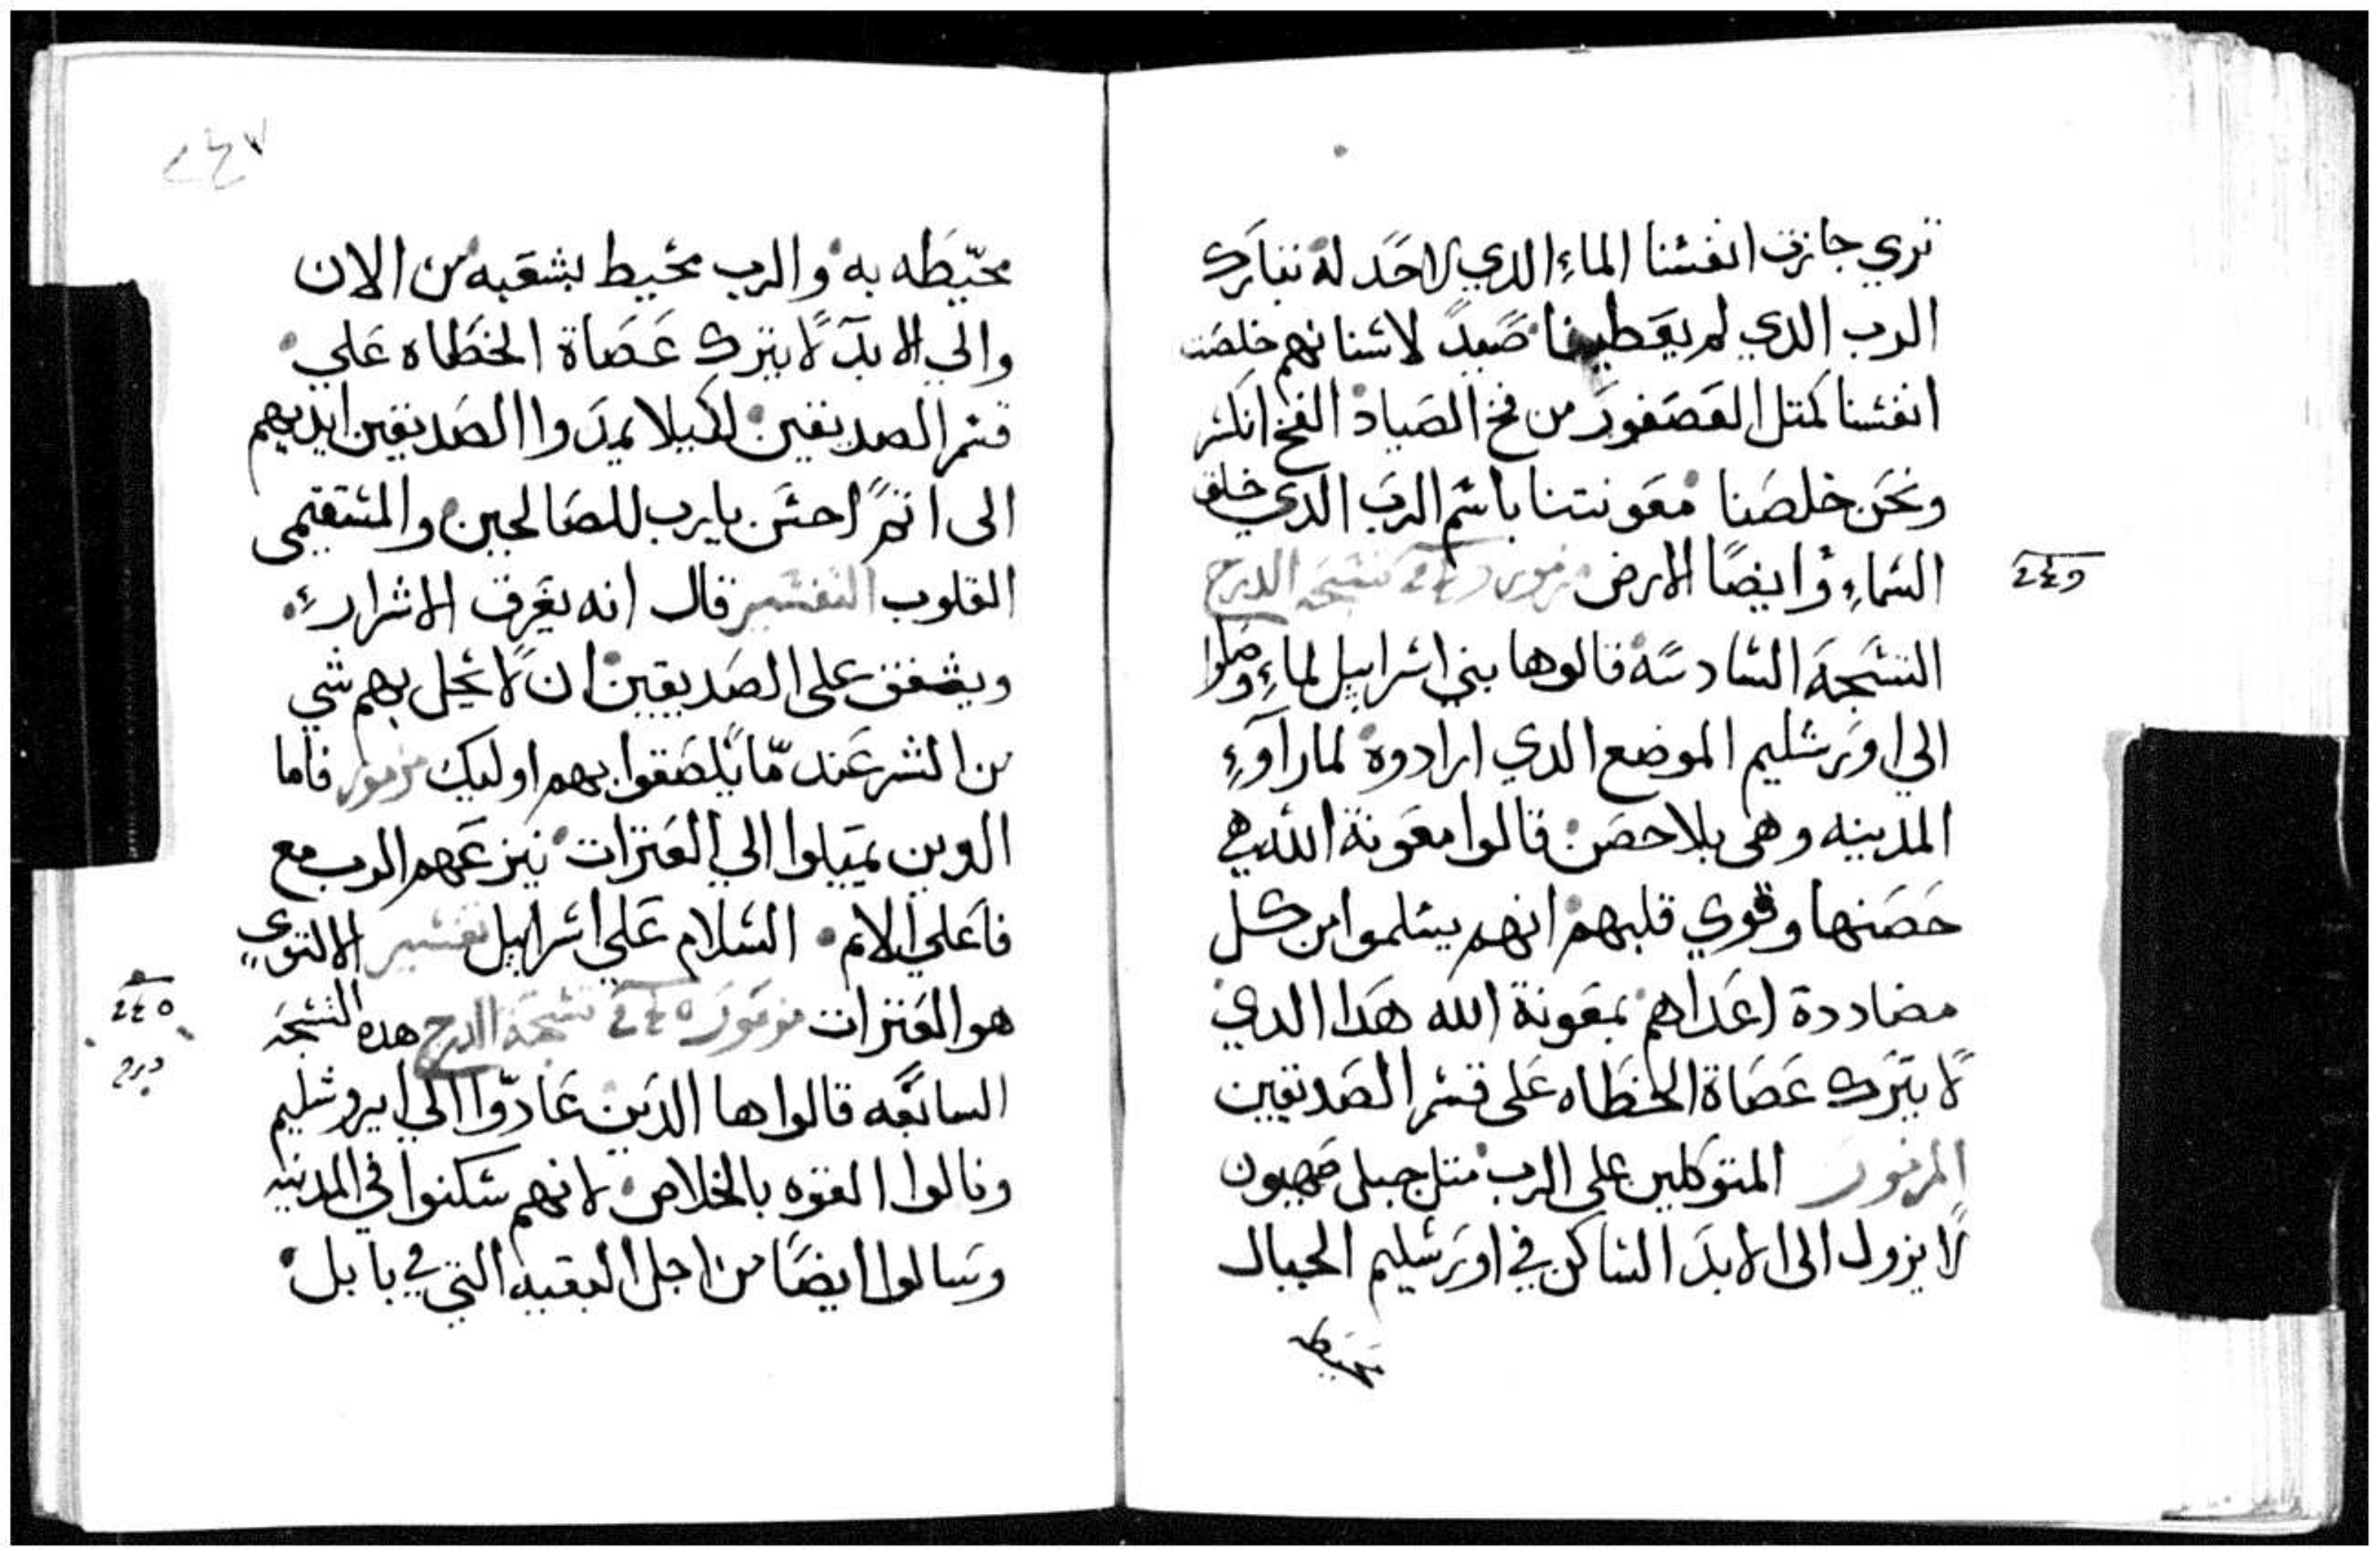 تري جازت انفسنا الماء الدي لاحد له نتبارك
الرب الدي لم يعطينا صيدً لاسنانهم خلصت
انفسنا كمتل العصفور من فخ الصياد الفخ انكسر
ونحن خلصنا معونتنا باسم الرب الدي خلق
السماء وايضًا الارض مزمور تسبحة الدرج
التسبحة السادسة قالوها بني اسراييل لماء وصلوا
الي اورشليم الموضع الدي ارادوه لما راوء
المدينه وهي بلا حصن قالوا معونة الله هي
حصنها وقوي قلبهم انهم يسلموا من كل
مضاددة اعداهم بمعونة الله هدا الدي
لا يترك عصاة الخطاه على قسم الصديقين
المزمور المتوكلين على الرب متل جبل صهيون
لا يزول الى الابد الساكن في اورشليم الجبال
محيطه
محيّطه به والرب محيط بشعبه من الان
والي الابد لا يترك عصاة الخطاه علي
قسم الصديقين لكيلا يمدوا الصديقين ايديهم
الى اتم احسن يا رب للصالحين والمستقيمى
القلوب التفسير قال انه يعرف الاشرار
ويشفق على الصديقين ان لا يحل بهم شي
من الشر عند ما يلصقوا بهم اوليك مزمور فاما
الدين يميلوا الي العترات ينزعهم الرب مع
فاعلي الاتم السلام علي اسراييل تفسير الالتوي
هو العترات مزمور تسبحة الدرج هده التسبحة
السابعه قالوها الدين عادوا الي ايروشليم
وقالوا القوه بالخلاص لانهم سكنوا في المدينه
وسالوا ايضًا من اجل البقيه التي في بابل